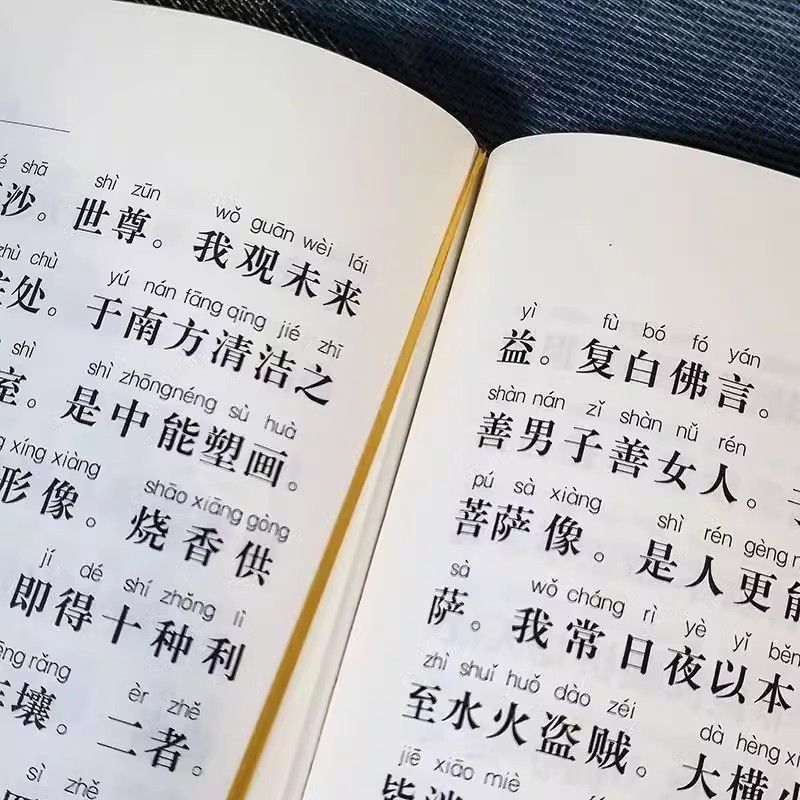 shā shì zūn wǒ guān wèi lái
沙。世尊。我观未来
zhù chù yú nán fāng qīng jié zhī
处。于南方清洁之
shì shì zhōng néng sù huà
室。是中能塑画。
xíng xiàng shāo xiāng gòng
形像。烧香供
jí dé shí zhǒng lì
即得十种利
rǎng èr zhě
壤。二者。
sì zhě
yì fù bó fó yán
益。复白佛言。
shàn nán zǐ shàn nǚ rén
善男子善女人。
pú sà xiàng shì rén gèng
菩萨像。是人更能
sà wǒ cháng rì yè yǐ běn
萨。我常日夜以本
zhì shuǐ huǒ dào zéi dà hèng
至水火盗贼。大横
jiē xiāo miè
皆消